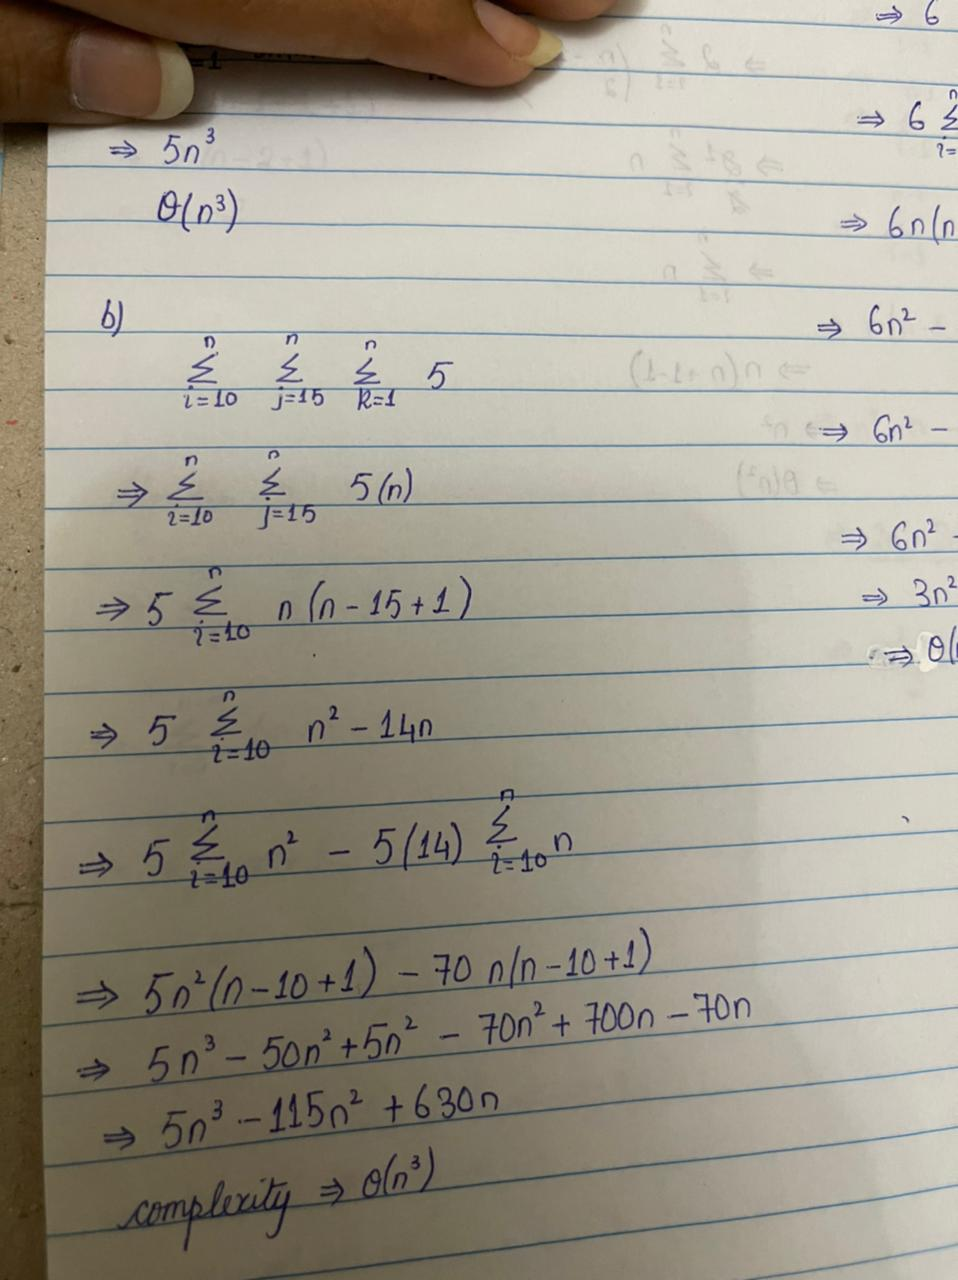 ⇒ 5n³
θ(n³)
b)
n∑i=10 n∑j=15 n∑k=1 5
⇒ n∑i=10 n∑j=15 5(n)
⇒ 5 n∑i=10 n(n-15+1)
⇒ 5 n∑i=10 n² - 14n
⇒ 5 n∑i=10 n² - 5(14) n∑i=10 n
⇒ 5n²(n-10+1) - 70 n(n-10+1)
⇒ 5n³ - 50n² + 5n² - 70n² + 700n - 70n
⇒ 5n³ - 115n² + 630n
complexity ⇒ θ(n³)
⇒ 6
⇒ 6 n∑i=
⇒ 6n(n
⇒ 6n² -
⇒ 6n² -
⇒ 6n² -
⇒ 3n²
⇒ θ(